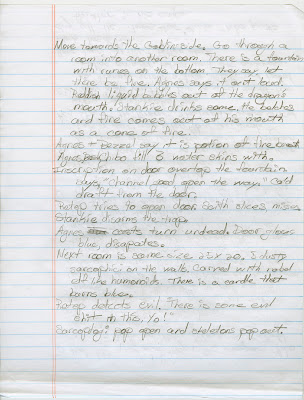 Move towards the Goblin side. Go through a
room into another room. There is a fountain
with runes on the bottom. They say, let
there be fire. Agnes says it out loud.
Reddish liquid bubbles out of the dragon's
mouth. Stankie drinks some. He belches
and fire comes out of his mouth
as a cone of fire.
Agnes + say it is potion of fire breath
Agnes fill 6 water skins with.
Inscription on door overtop the fountain
says, "Channel good open the way." Cold
draft from the door.
tries to open door. Scith slices, miss.
Stankie disarms the trap.
Agnes casts turn undead. Door glows
blue, disapates.
Next room is same size 20 x 20. 3 dusty
sarcophici on the walls. Carved with
elf like humanoids. There is a candle that
burns blue.
detects evil. "There is some evil
shit in this, Yo!"
Sarcophogi pop open and skeletons pop out.